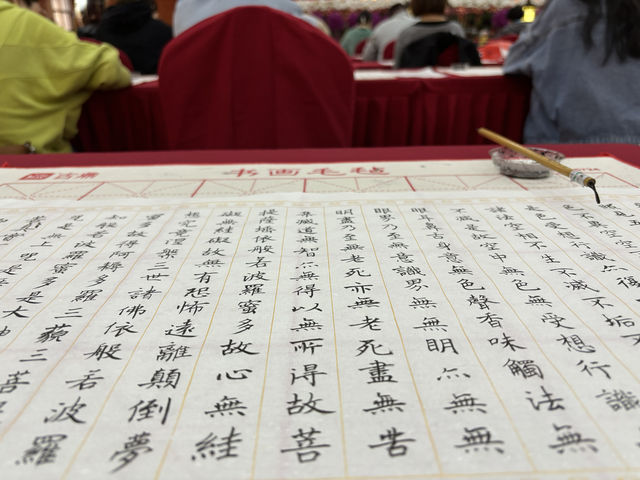 书画毛毡
是色受想行識亦復
諸法空相不生不滅不垢不
不減是故空中無色無受想行識
眼耳鼻舌身意無色聲香味觸法無
眼界乃至無意識界無無明亦無無
明盡乃至無老死亦無老死盡無苦
集滅道無智亦無得以無所得故菩
提薩埵依般若波羅蜜多故心無絓
礙無絓礙故無有恐怖遠離顛倒夢
想究竟涅槃三世諸佛依般若波羅
蜜多故得阿耨多羅三藐三菩
知般若波羅蜜多是大神